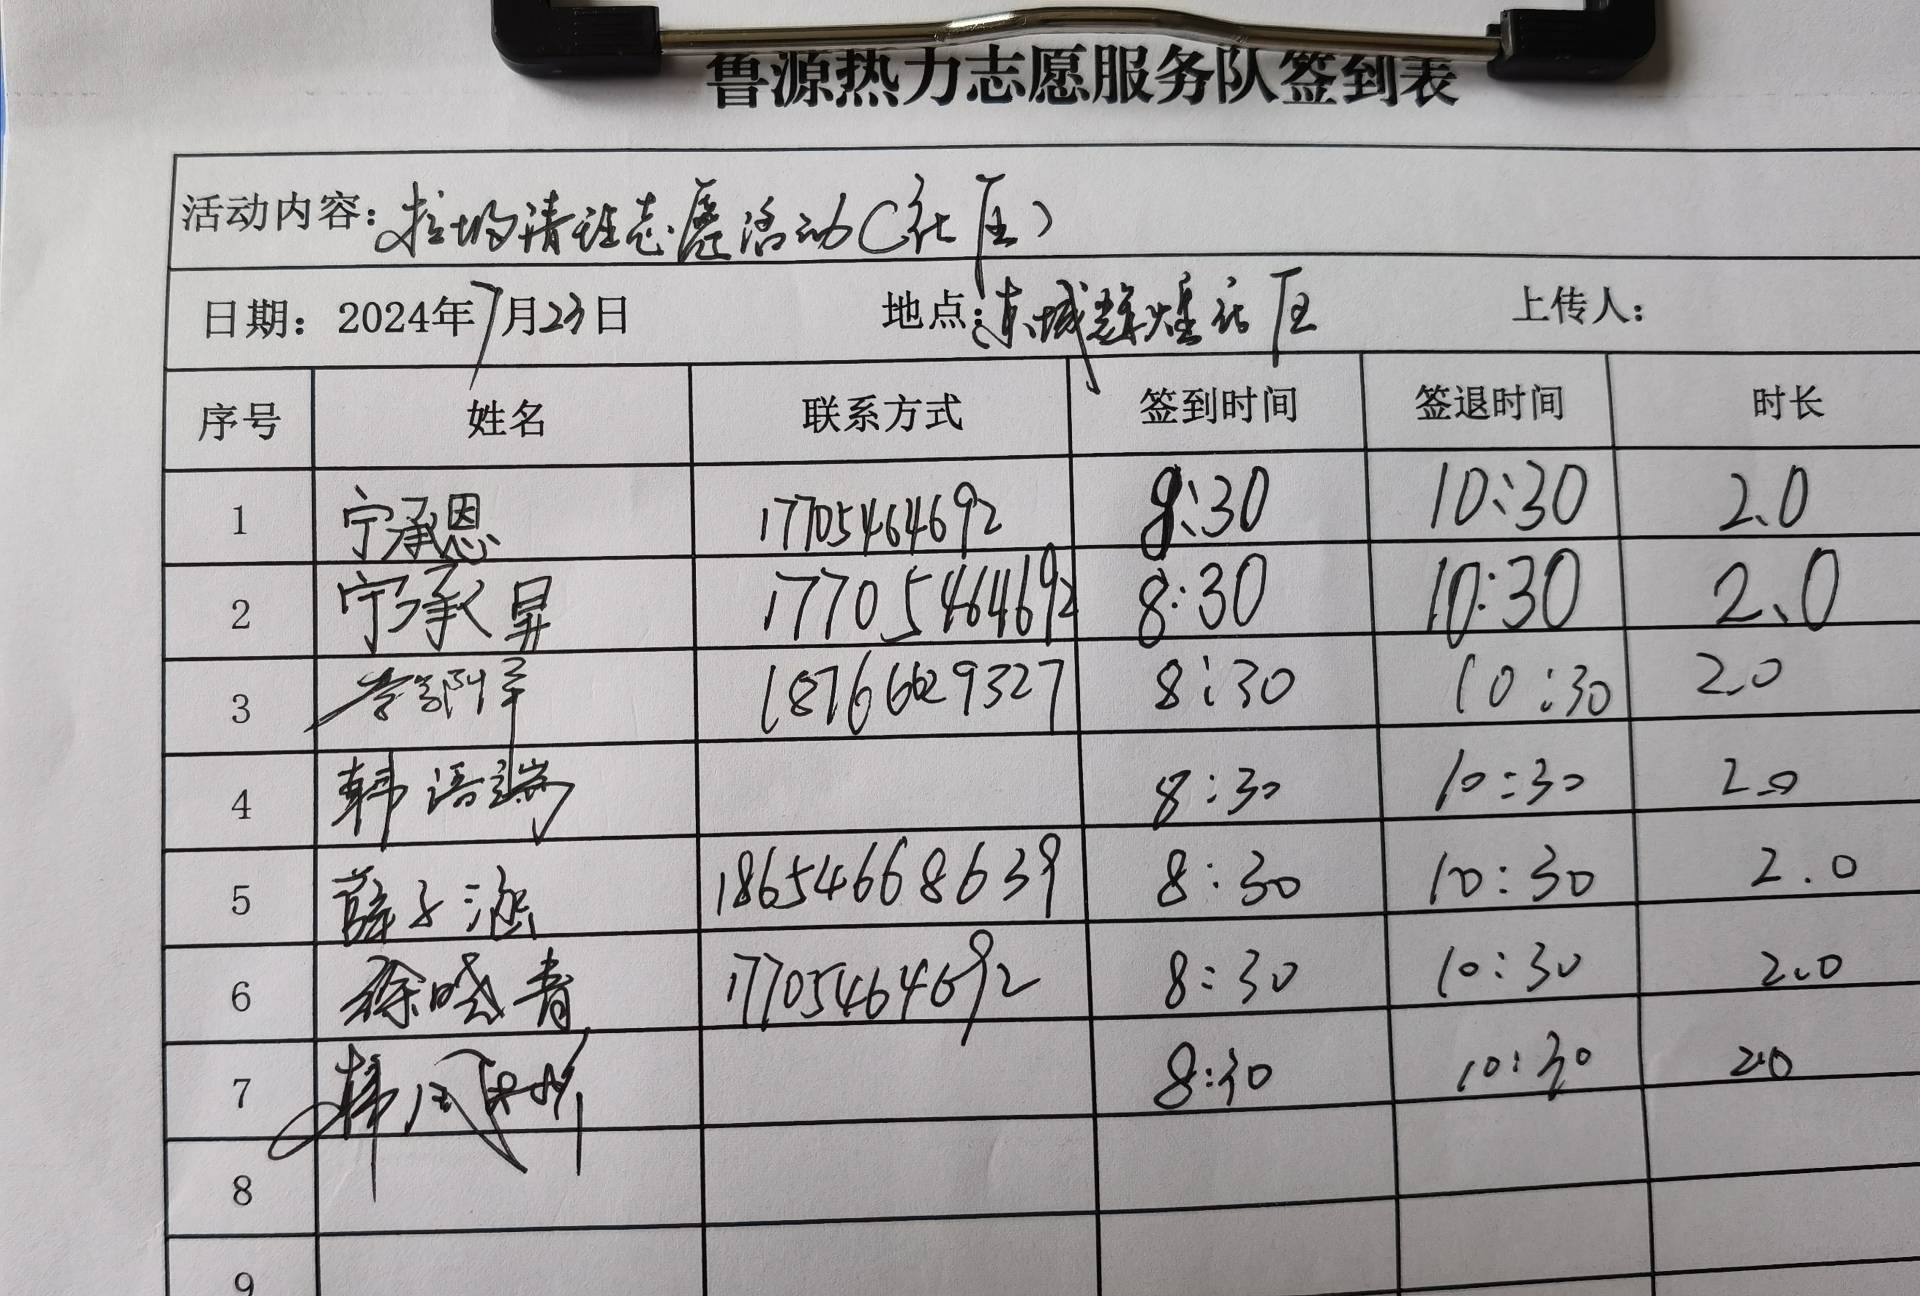 鲁源热力志愿服务队签到表
活动内容：垃圾清理志愿活动（社区）
日期：2024年7月23日 地点：东城辉煌社区 上传人：
序号 姓名 联系方式 签到时间 签退时间 时长
1 宁承恩 17705464692 8:30 10:30 2.0
2 宁承昇 17705464692 8:30 10:30 2.0
3 18766629327 8:30 10:30 2.0
4 韩语端 8:30 10:30 2.0
5 薛子涵 18654668639 8:30 10:30 2.0
6 徐晓青 17705464692 8:30 10:30 2.0
7 韩 8:30 10:30 2.0
8
9